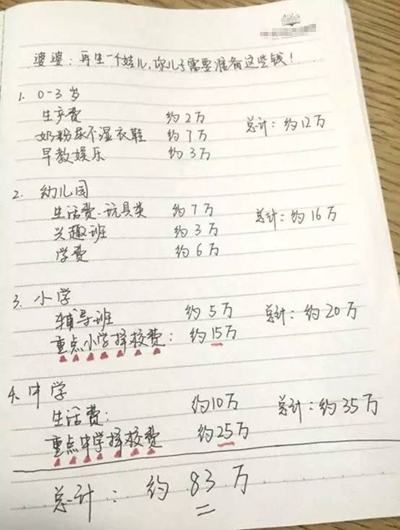 婆婆:再生一个娃儿,你儿子需要准备这些钱!
1. 0-3岁
生产费 约2万
奶粉尿不湿衣鞋 约7万 总计:约12万
早教娱乐 约3万
2. 幼儿园
生活费.玩具类 约7万 总计:约16万
兴趣班 约3万
学费 约6万
3. 小学
辅导班 约5万 总计:约20万
重点小学择校费: 约15万
4. 中学
生活费: 约10万 总计:约35万
重点中学择校费 约25万
总计: 约83万